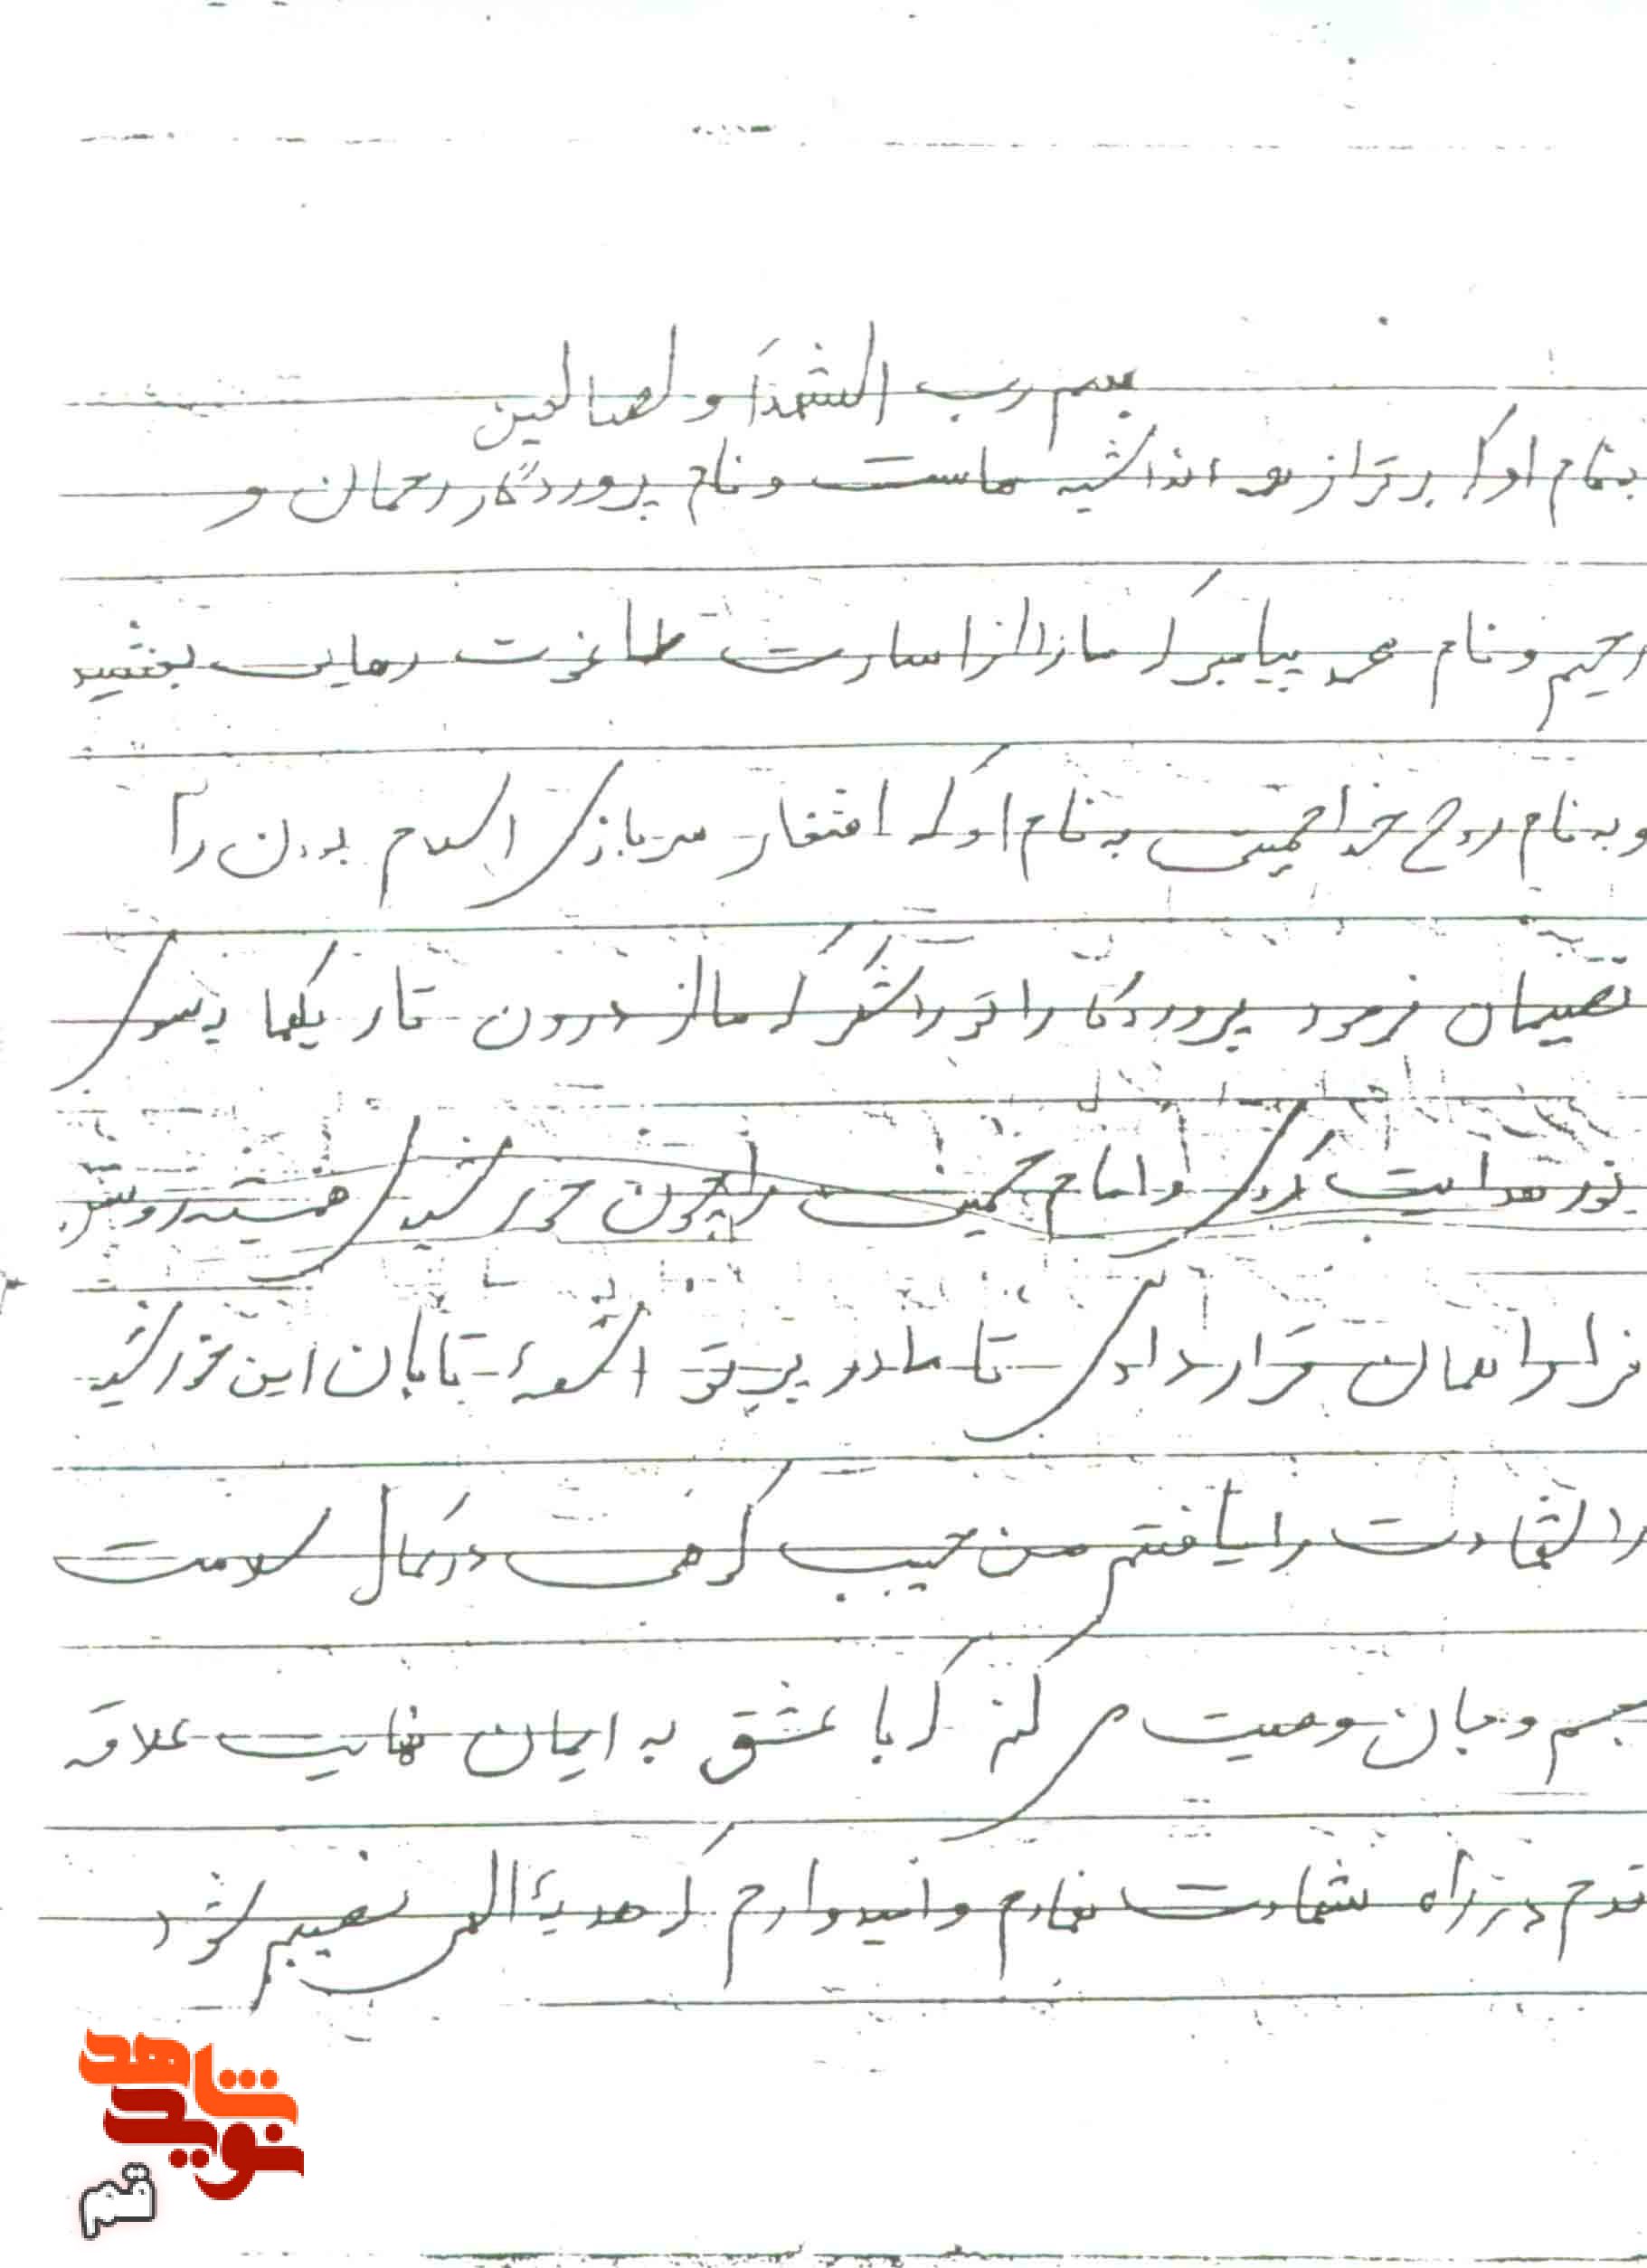 بسم رب الشهدا و لصالحین
بنام او که برتر از هر اندیشه ماست و نام پروردگار رحمان و
رحیم و نام محمد پیامبر که ما را از اسارت طاغوت رهایی بخشید
و به نام روح خدا خمینی به نام او که افتخار سربازی اسلام بودن را
نصیبمان فرمود پروردگارا تو را شکر که ما از درون تاریکیها به سوی
نور هدایت کردی و امام خمینی را چون خورشیدی همیشه روشن
فرا راهمان قرار دادی تا ما در پرتو اشعهٔ تابان این خورشید
راه شهادت را یافتیم من حبیب کرمی در کمال سلامت
جسم و جان وصیت می کنم که با عشق به ایمان نهایت علاقه
قدم در راه شهادت نهادم و امیدوارم که هدیهٔ الهی نصیبم شود
نوید شاهد
قم